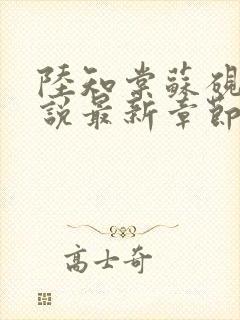 陸知棠蘇硯
說最新章節
高士奇